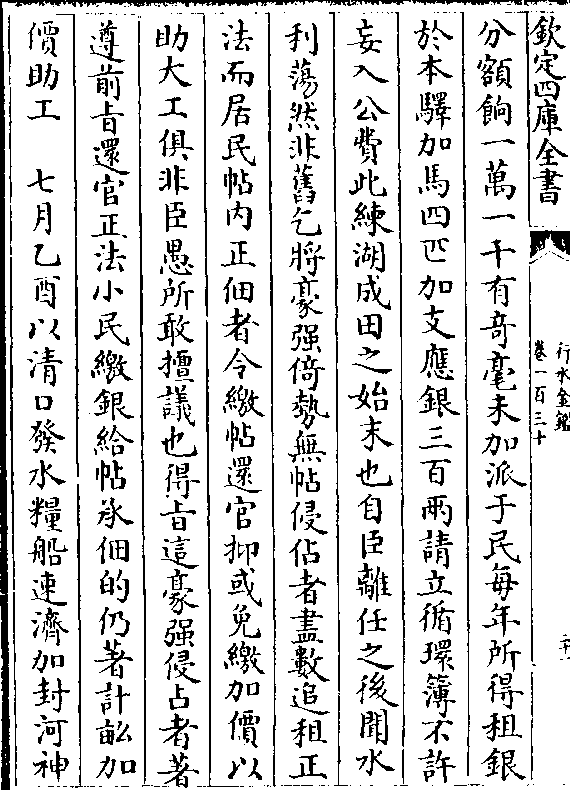 欽定四庫全書
行水金鑑
卷一百三十
分額餉一萬一千有竒毫未加派于民每年所得租銀
於本驛加馬四匹加支應銀三百兩請立循環簿不許
妄入公費此練湖成田之始末也自臣離任之後聞水
利蕩然非舊乞將豪强倚勢無帖侵佔者盡數追租正
法而居民帖内正佃者令繳帖還官抑或免繳加價以
助大工俱非臣愚所敢擅議也得㫖這豪强侵占者著
遵前㫖還官正法小民繳銀給帖承佃的仍著計畝加
價助工　七月乙酉以清口發水糧船速濟加封河神